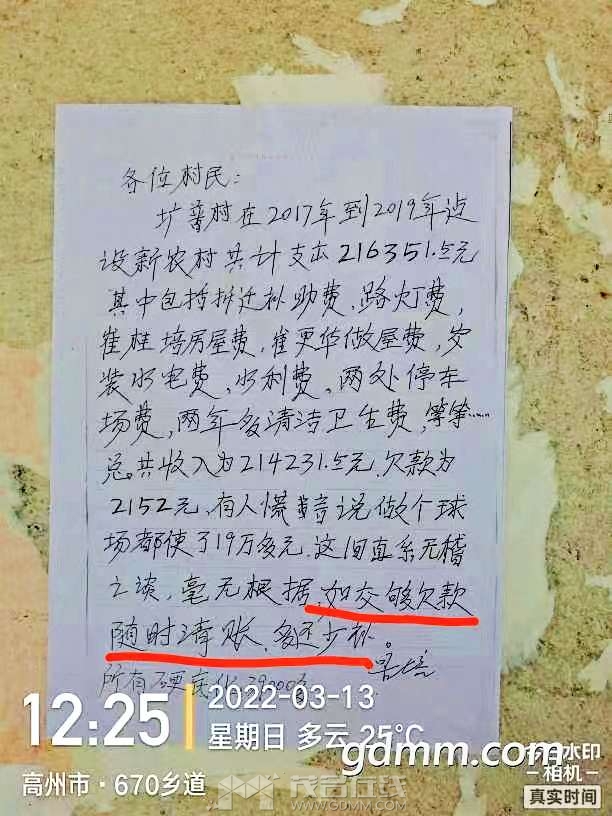 各位村民:
圹簕村在2017年到2019年边
设新农村共计支出216351.5元
其中包括拆迁补助费、路灯费,
崔桂培房屋费,崔更华做屋费,安
装水电费,水利费,两处停车
场费,两年多清洁卫生费,等等……
总共收入为214231.5元.欠款为
2152元,有人慌说做个球
场都使了19万多元.这间直系无稽
之谈,毫无根据,如交够欠款
随时清账、多还少补。
所有硬底化
12:25
2022-03-13
星期日 多云 25°C
高州市·670乡道
gdmm.com
水印
-相机-
真实时间
茂名在线
WWW.GDMM.COM